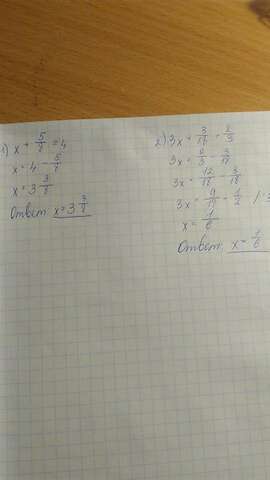 1) x + 5/8 = 4
x = 4 - 5/8
x = 3 3/8
Ответ x = 3 3/8
2) 3x + 3/18 = 2/3
3x = 2/3 - 3/18
3x = 12/18 - 3/18
3x = 9/18 = 1/2 / : 3
x = 1/6
Ответ: x = 1/6